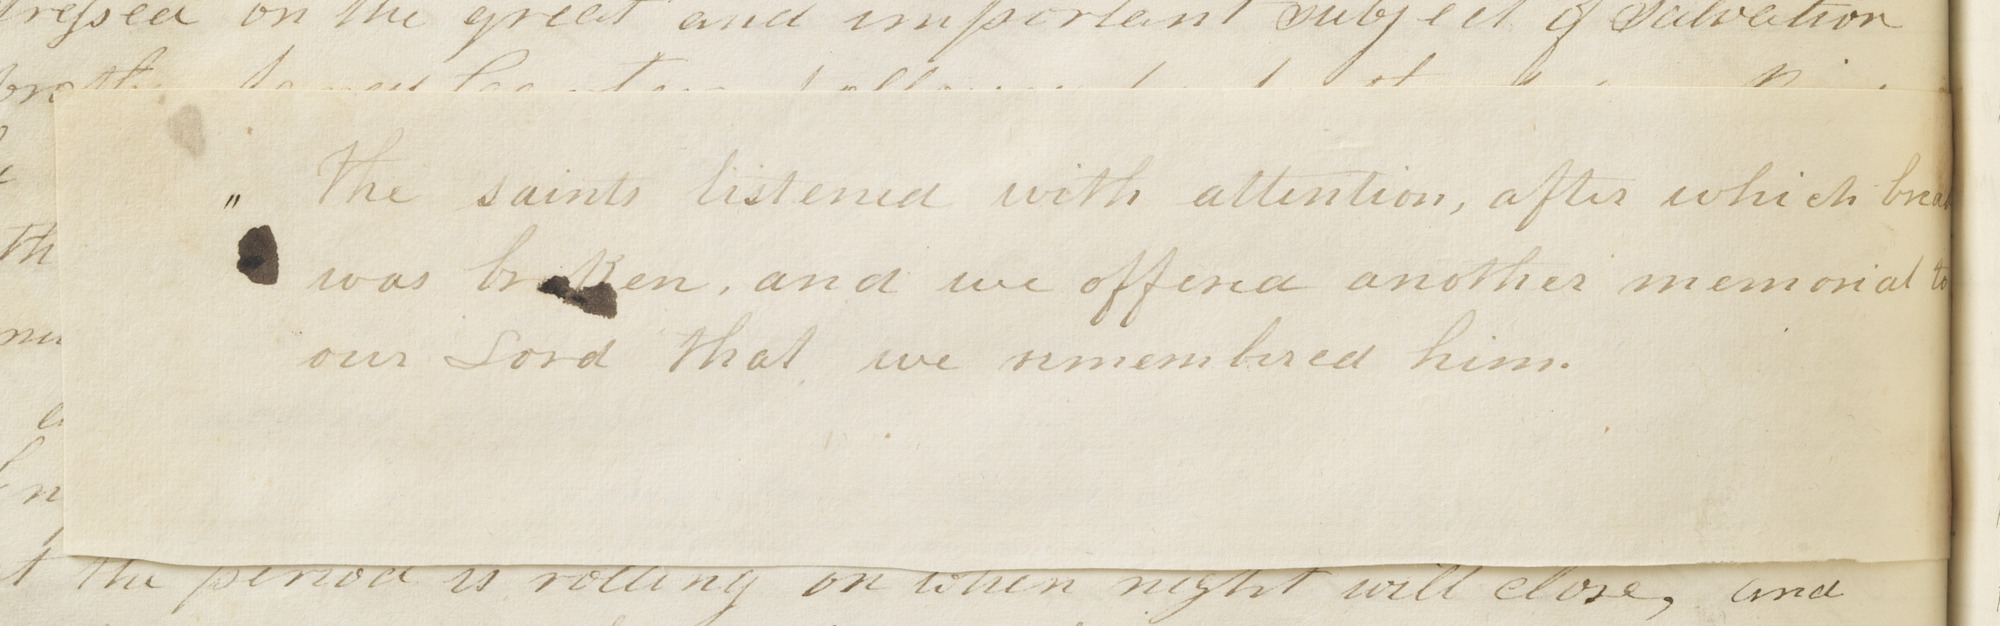 on the great and important subject of Salvation
" The saints listened with attention, after which
was broken, and we offered another memorial to
our Lord that we remembered him.
the period is rolling on when night will close, and